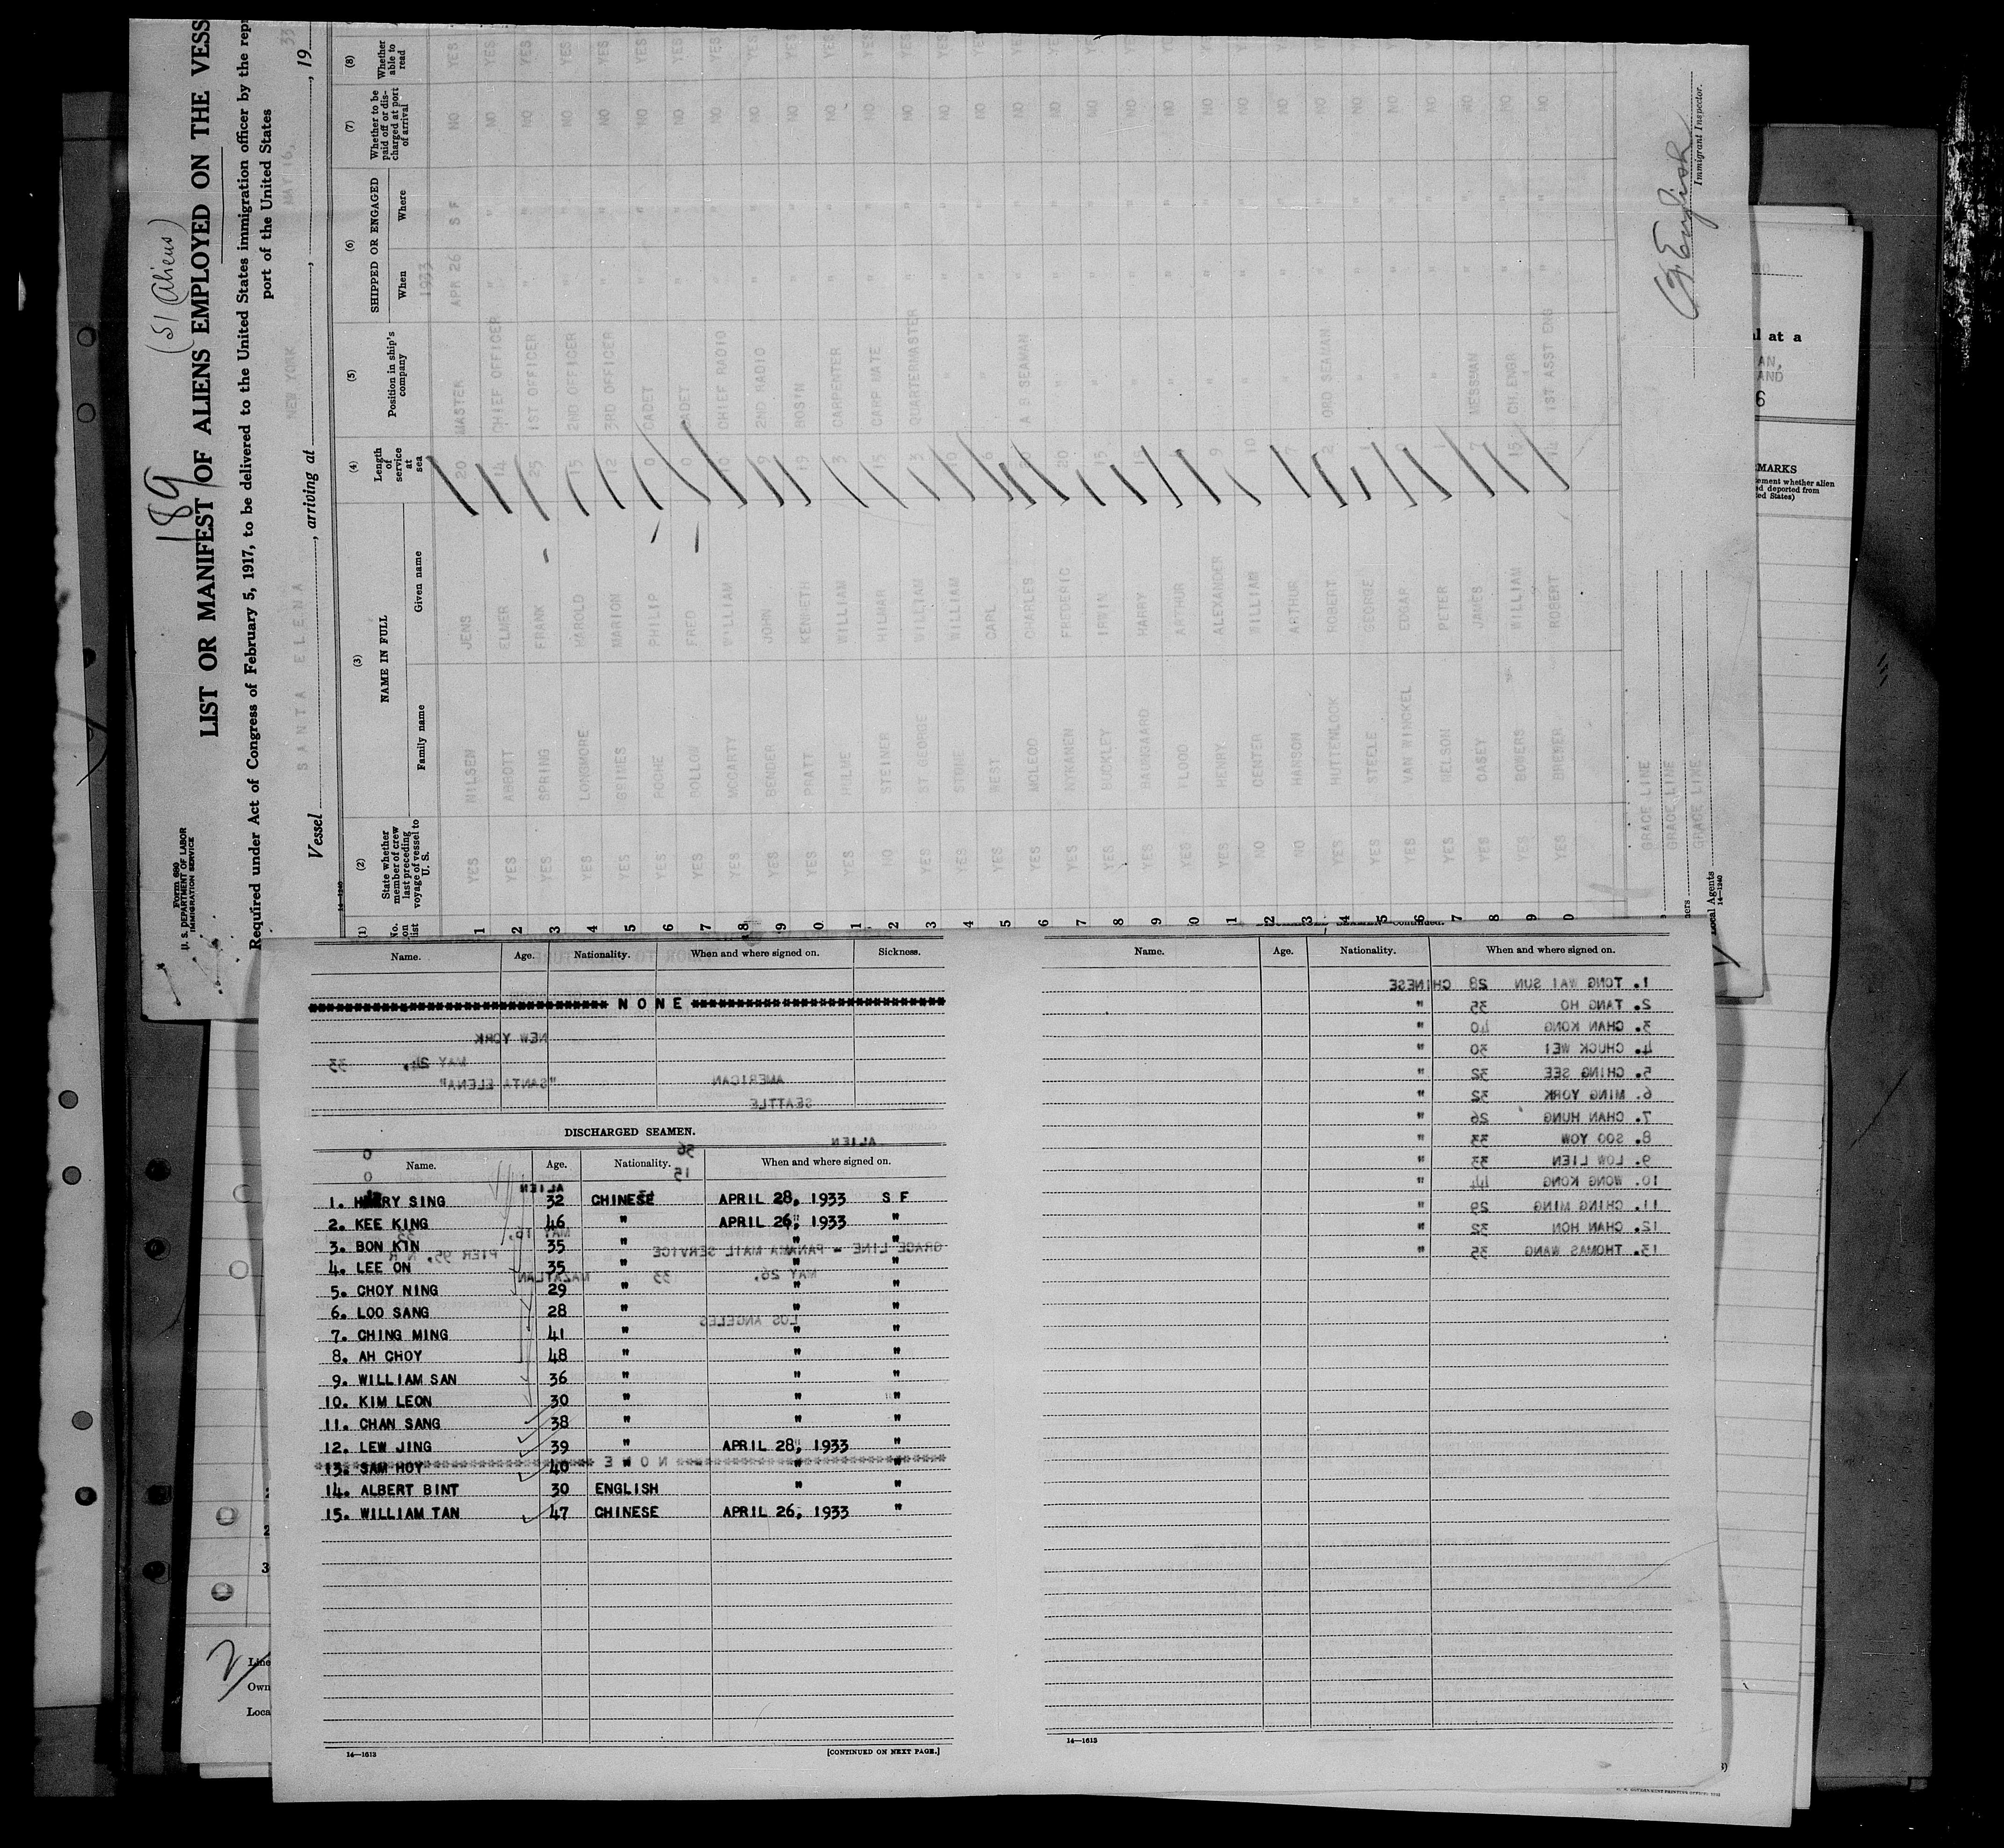 189
(51 Aliens)
Form 680
U. S. DEPARTMENT OF LABOR
IMMIGRATION SERVICE
LIST OR MANIFEST OF ALIENS EMPLOYED ON THE VESS
Required under Act of Congress of February 5, 1917, to be delivered to the United States immigration officer by the repr
port of the United States
Vessel SANTA ELENA, arriving at NEW YORK, MAY 16, 1933
14—1240
(1) (2) (3) (4) (5) (6) (7) (8)
No. on list
State whether member of crew last preceding voyage of vessel to U. S.
NAME IN FULL
Family name Given name
Length of service at sea
Position in ship's company
SHIPPED OR ENGAGED
When Where
Whether to be paid off or discharged at port of arrival
Whether able to read
1933
1 YES NILSEN JENS 20 MASTER APR 26 S F NO YES
2 YES ABBOTT ELMER 14 CHIEF OFFICER " " NO YES
3 YES SPRING FRANK 25 1ST OFFICER " " NO YES
4 YES LONGMORE HAROLD 15 2ND OFFICER " " NO YES
5 YES GRIMES MARION 12 3RD OFFICER " " NO YES
6 YES ROCHE PHILIP 0 CADET " " NO YES
7 YES ROLLOW FRED 0 CADET " " NO YES
8 YES MCCARTY WILLIAM 10 CHIEF RADIO " " NO YES
9 YES BENDER JOHN 9 2ND RADIO " " NO YES
0 YES PRATT KENNETH 19 BOSIN " " NO YES
1 YES HULME WILLIAM 3 CARPENTER " " NO YES
2 NO STEINER HILMAR 15 CARP MATE " " NO YES
3 YES ST GEORGE WILLIAM 3 QUARTERMASTER " " NO YES
4 YES STONE WILLIAM 10 " " " NO YES
5 YES WEST CARL 6 " " " NO YES
6 YES MCLEOD CHARLES 30 A B SEAMAN " " NO YES
7 YES NYKANEN FREDERIC 20 " " " NO
8 YES BUCKLEY IRWIN 15 " " " NO
9 YES BAUMGAARD HARRY 15 " " " NO
0 YES FLOOD ARTHUR " " " NO
1 YES HENRY ALEXANDER 9 " " " NO
2 NO CENTER WILLIAM 10 " " " NO
3 NO HANSON ARTHUR 7 " " " NO
4 YES HUTTENLOCK ROBERT 2 ORD SEAMAN " " NO
5 YES STEELE GEORGE 1 " " " NO
6 YES VAN WINCKEL EDGAR " " " NO
7 YES NELSON PETER 1 " " " NO
8 YES CASEY JAMES 7 MESSMAN " " NO
9 YES BOWERS WILLIAM 15 CH. ENGR " " NO
0 YES BREWER ROBERT 14 1ST ASST ENG " " NO
GRACE LINE
GRACE LINE
GRACE LINE
ners
Local Agents
14—1240
Immigrant Inspector.
l at a
AN,
AND
6
MARKS
ement whether alien
ed deported from
ted States)
Name. Age. Nationality. When and where signed on. Sickness.
NONE
NEW YORK
MAY 24, 33
"SANTA ELENA" AMERICAN
SEATTLE
DISCHARGED SEAMEN.
ALIEN
0 36
0 15
Name. Age. Nationality. When and where signed on.
ALIEN
1. HARRY SING 32 CHINESE APRIL 28, 1933 S F
2. KEE KING 46 " APRIL 26, 1933 "
MAY 16, 33
3. BON KIN 35 " " "
GRACE LINE - PANAMA MAIL SERVICE PIER 95, N R
4. LEE ON 35 " " "
MAY 26, 33 MAZATLAN
5. CHOY NING 29 " " "
6. LOO SANG 28 " " "
LOS ANGELES
7. CHING MING 41 " " "
8. AH CHOY 48 " " "
9. WILLIAM SAN 36 " " "
10. KIM LEON 30 " " "
11. CHAN SANG 38 " " "
12. LEW JING 39 " APRIL 28, 1933 "
NONE
13. SAM HOY 40 " " "
14. ALBERT BINT 30 ENGLISH " "
15. WILLIAM TAN 47 CHINESE APRIL 26, 1933 "
14—1613
[CONTINUED ON NEXT PAGE.]
Name. Age. Nationality. When and where signed on.
1. TONG WAI SUN 28 CHINESE
2. TANG HO 35 "
3. CHAN KONG 40 "
4. CHUCK WEI 30 "
5. CHING SEE 32 "
6. MING YORK 32 "
7. CHAN HUNG 26 "
8. SOO YOW 33 "
9. LOW LIEN 33 "
10. WONG KONG 44 "
11. CHING MING 29 "
12. CHAN HON 32 "
13. THOMAS WANG 35 "
14—1613
2
3
2
Line
Own
Loca